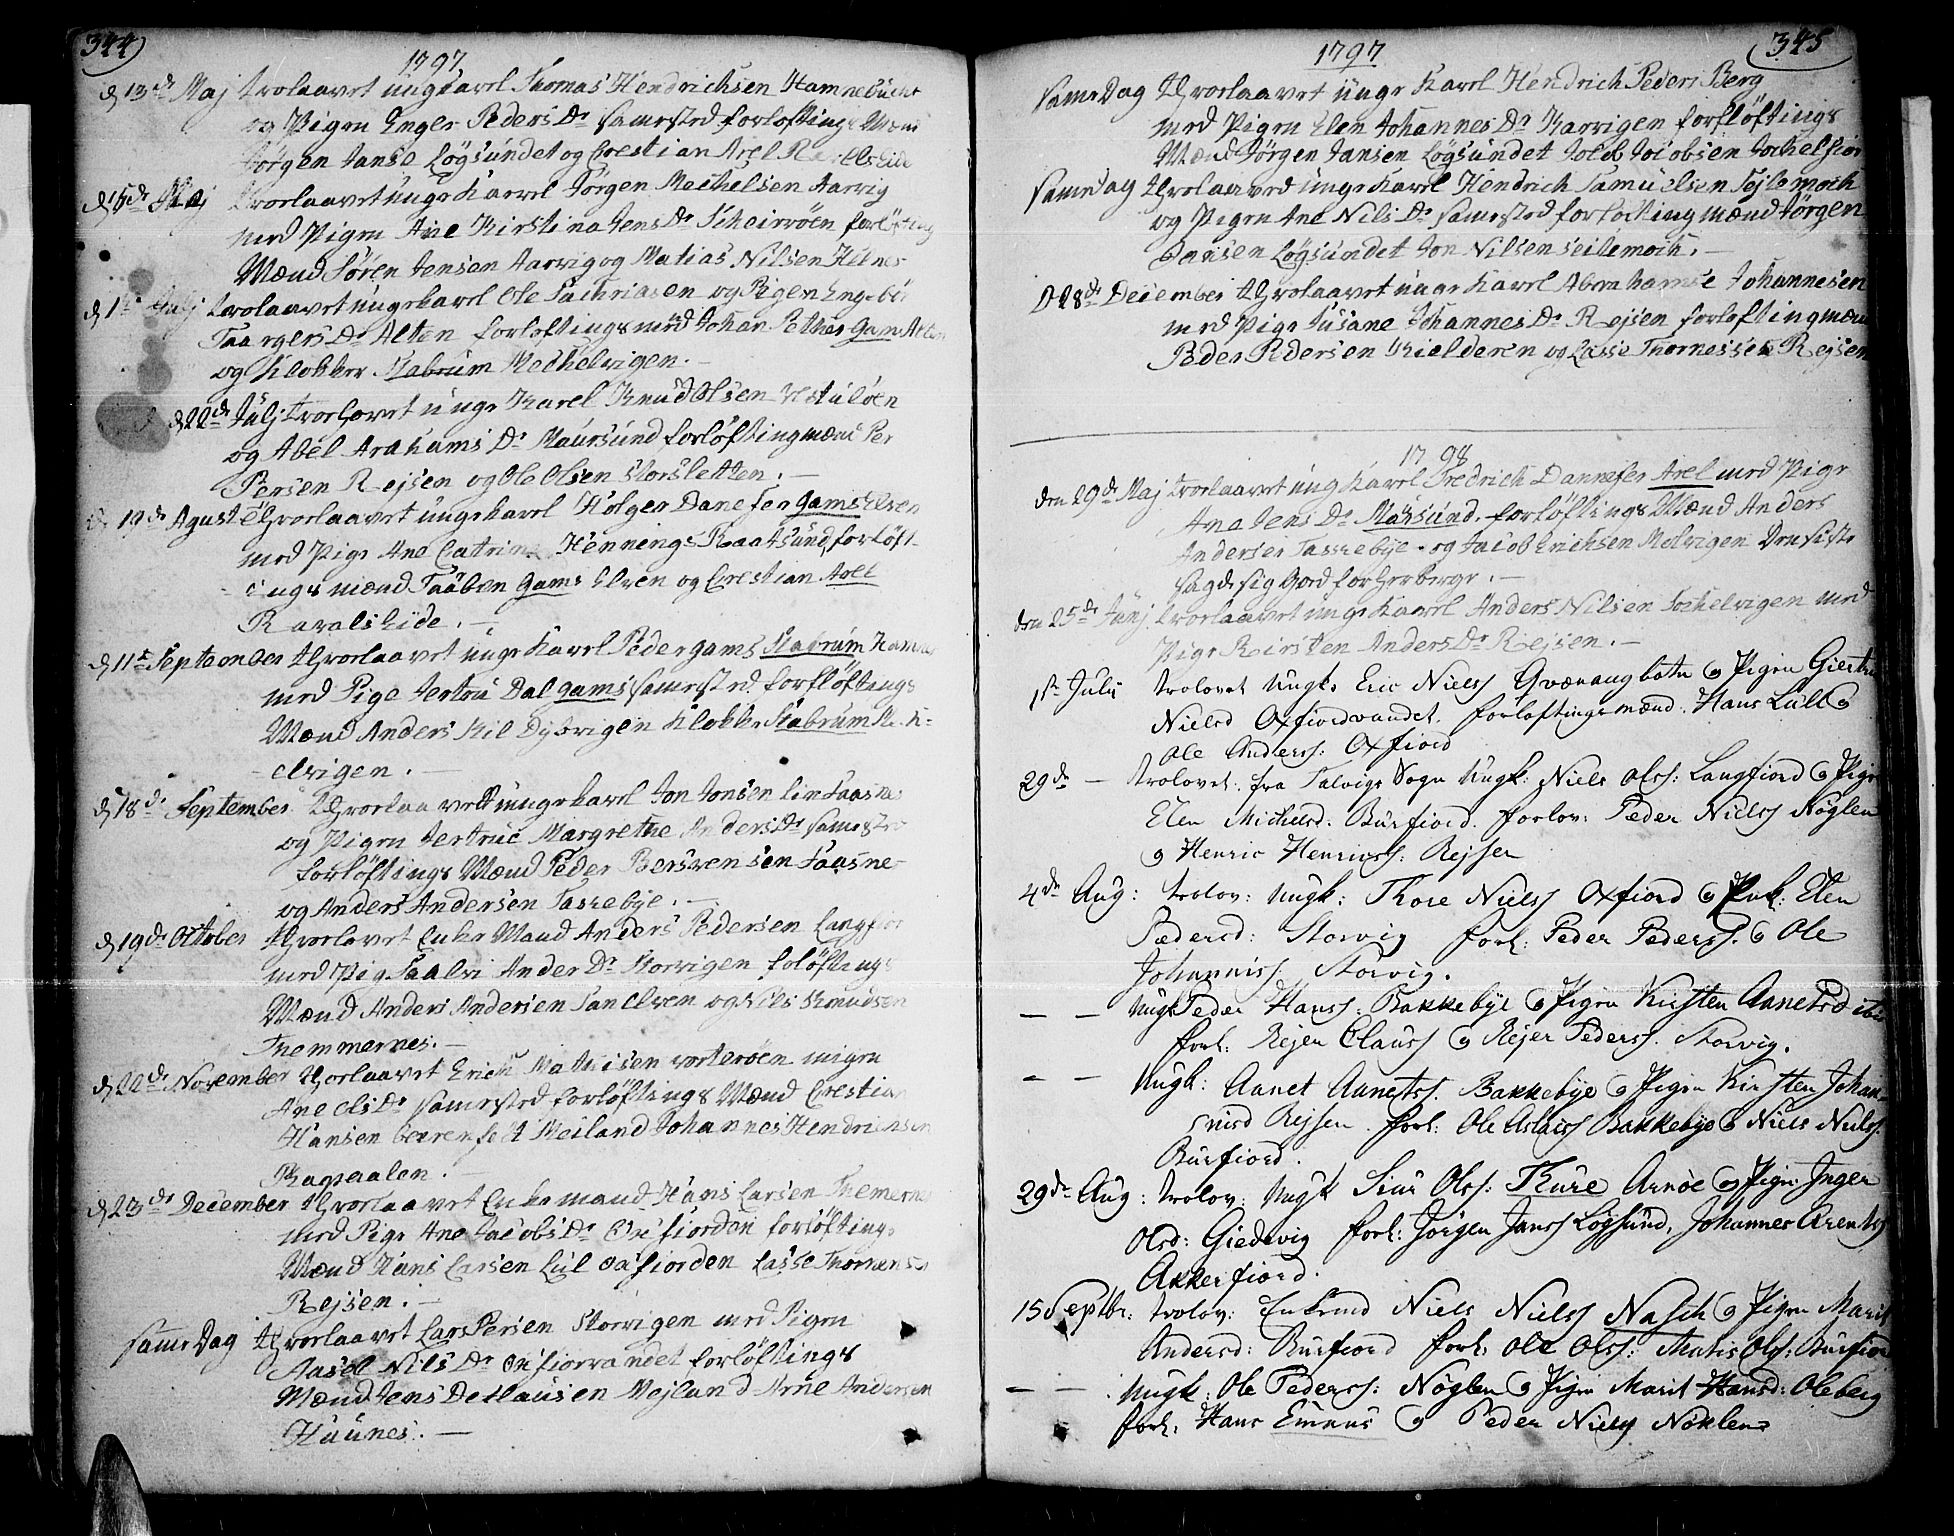 344
1797
d 13de Maj trolaavet ungkarl Thomas Hendrichsen Hamnebucht
og Pigen Inger Peders Dr samested forløftings Mænd
Jørgen Janse Løgsundet og Crestian Axel Ravelseide
d 15de Maj trorlaavet unge Karrel Jørgen Mechelsen Aarvig
med Pigen Ane Kirstina Jens Dr Scheirvöen forlöfting
Mænd Sören Jensen Aarvig og Matias Nilsen Helnes
d 1ste Julj trolaavet unge karel Ole Sachriasen og Pigen Engebor
Taargers Dr Alten forløftings med Johan Pethas Gam Alten
og Klokker Stabrum Skechelvigen.
d 22de Julj trorlovet unge Karel Knud Olsen
og Abel Arahams Dr Maursund forløftingmænd Per
Persen Rejsen og Ole Olsen Storsletten.
d 19de Agust Throrlaavet unge karel Holger Danefer Gams Elven
med Pige Ane Catrina Hennings Raatsund forløft-
ings mænd Taaben Gams Elven og Crestian Axel
Ravalseide.
d 11te September Throrlaavet unge Karrl Peder gams Stabrum
med Pige Jertru Dal gams samested forfløftings
Mænd Anders Kil Dybvigen Klokker Stabrum Skek-
elvigen.
d 18de September Throrlaavett unge karel Jon Jonsen
og Pigen Jertrue Margrethe Anders Dr samested
forløftings Mænd Peder Bersvensen
og Anders Andersen Tassebye.
d 19de October Throrlovet Enke Mand Anders Pedersen Langfior
med Pig Saalvi Ander Dr Storvigen foløftings
Mænd Anders Andersen og Nils Knudsen
Tremmernes.
d 22de November thorlaavet Erich Mathisen vorterøen migen
Ane Els Dr samested forløftings Mænd Crestian
Hansen Meiland Johannes Hendricksen
d 23de December throrlaavet Enke mand Hans Larsen
med Pige Ane Jacobs Dr Oxfiorden forløftings
Mænd Hans Larsen Lul oxfiorden Lasse Thomesen
Rejsen.
same Dag throrlaavet Lars Persen Storvigen med Pigen
Aasel Nils Dr Oxfiorvandet forløftings
Mænd Jens Detlausen Mejland Arne Andersen
Hauknes.
345
1797
same Dag throrlaavet unge Karrl Hendrich Peders Berg
med Pigen Elen Johannes Dr Karvigen forfløftings
Mænd Jørgen Jansen Løgsundet Jocob Jocobsen
same dag throlaaved unge Karel Hendrich Samuelsen Sejlemoch
og Pigen Ane Nils Dr samested forløfting mænd Jørgen
Jansen Løgsundet Jon Nilsen seilemoch.
D 28de December throlaavet unge Karrl Abrahamse Johannesen
med Pige Susane Johannes Dr Rejsen forløftingmænd
Peder Pedersen Kielderen og Lasse Thomessen Rejsen
1798
den 29de Maj trorlaavet ung Karrl Fredrich Dannefer Axel med Pige
Ane Jens Dr Maursund. forløftings Mænd Anders
Andersen Tassebye og Jacob Erichsen Molvigen Den siste
sagde sig god for herberge.
den 25de Junj trorlaavet unge Karrl Anders Nilsen Sochelvigen med
Pige Kirsten Anders Dr Rejsen.
1ste Julij trolovet Ungk. Eric Nielss Qvænangbotn og Pigen Giertru
Nielsd Oxfiordvandet. forløftingsmænd. Hans Lull og
Ole Anderss: Oxfiord
29de — trolovet: fra Talvigs Sogn Ungk: Niels Olss: Langfiord og Pigen
Elen Michelsd: Burfiord. forlov: Peder Nielss Nøglen
og Henric Henricss: Rejsen
4de Aug: trolov: Ungk: Thore Nielss Oxfiord og Enk: Elen
Pædersd: Storvig forl: Peder Pederss. og Ole
Johanniss. Storvig.
— — Ungk Peder Hanss: Bakkebye og Pigen Kirsten Aanetsd ibid
forl: Rejer Clauss og Rejer Pederss. Storvig.
— — Ungk: Aanet Aanetss. Bakkebye og Pigen Kirsten Johan-
nisd Rejsen. forl: Ole Aslacss Bakkebye og Niels Nielss.
Burfiord.
29de Aug: trolov: Ungk Siur Olss: Thure Arnøe og Pigen Inger
Olsd: Giedevig forl: Jørgen Janss Løgsund, Johannes Arentss
Akkerfiord.
15 Septbr: trolov: Enkemd Niels Nielss Nasch og Pigen Marit
Andersd: Burfiord forl: Ole Olss: Matis Olss: Burfiord
— — Ungk: Ole Pederss: Nøglen og Pigen Marit Hansd: Oleberg
forl: Hans Emaus og Peder Nielss Nøklen